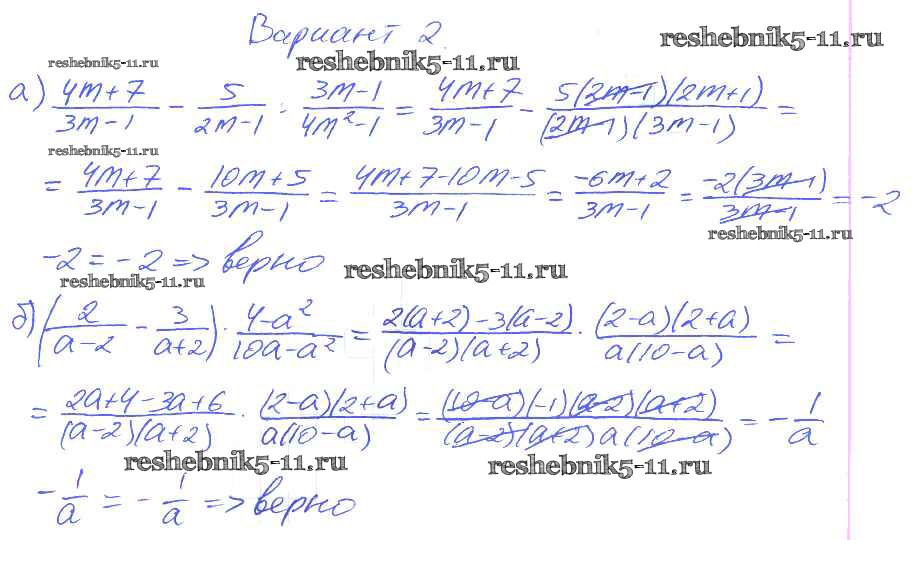 Вариант 2.
reshebnik5-11.ru
reshebnik5-11.ru
reshebnik5-11.ru
а) (4m+7)/(3m-1) - 5/(2m-1) : (3m-1)/(4m²-1) = (4m+7)/(3m-1) - 5(2m-1)(2m+1)/(2m-1)(3m-1) =
reshebnik5-11.ru
= (4m+7)/(3m-1) - (10m+5)/(3m-1) = (4m+7-10m-5)/(3m-1) = (-6m+2)/(3m-1) = -2(3m-1)/(3m-1) = -2
reshebnik5-11.ru
-2 = -2 => верно
reshebnik5-11.ru
reshebnik5-11.ru
б) (2/(a-2) - 3/(a+2)) · (4-a²)/(10a-a²) = (2(a+2)-3(a-2))/(a-2)(a+2) · (2-a)(2+a)/a(10-a) =
= (2a+4-3a+6)/(a-2)(a+2) · (2-a)(2+a)/a(10-a) = (10-a)(-1)(a-2)(a+2)/(a-2)(a+2)a(10-a) = -1/a
reshebnik5-11.ru
reshebnik5-11.ru
-1/a = -1/a => верно